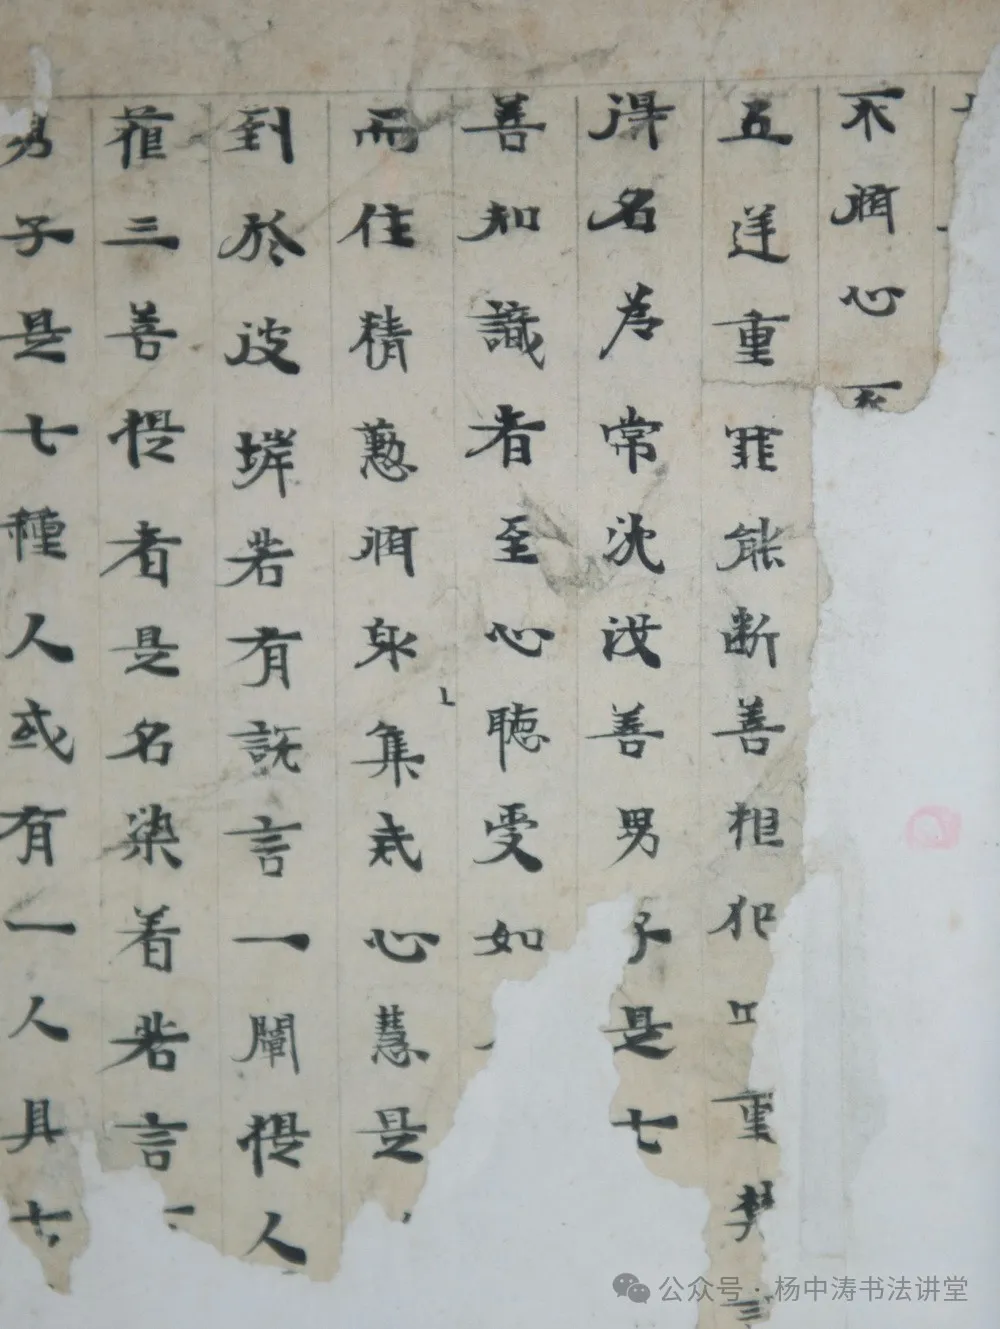 不修心不
五逆重罪能斷善根犯四重禁
得名為常沈沒善男子是七
善知識者至心聽受如
而住精懃修身集戒心慧是
到於彼岸若有說言一闡提人
藐三菩提者是名染著若言
男子是七種人或有一人具七
公众号·杨中涛书法讲堂